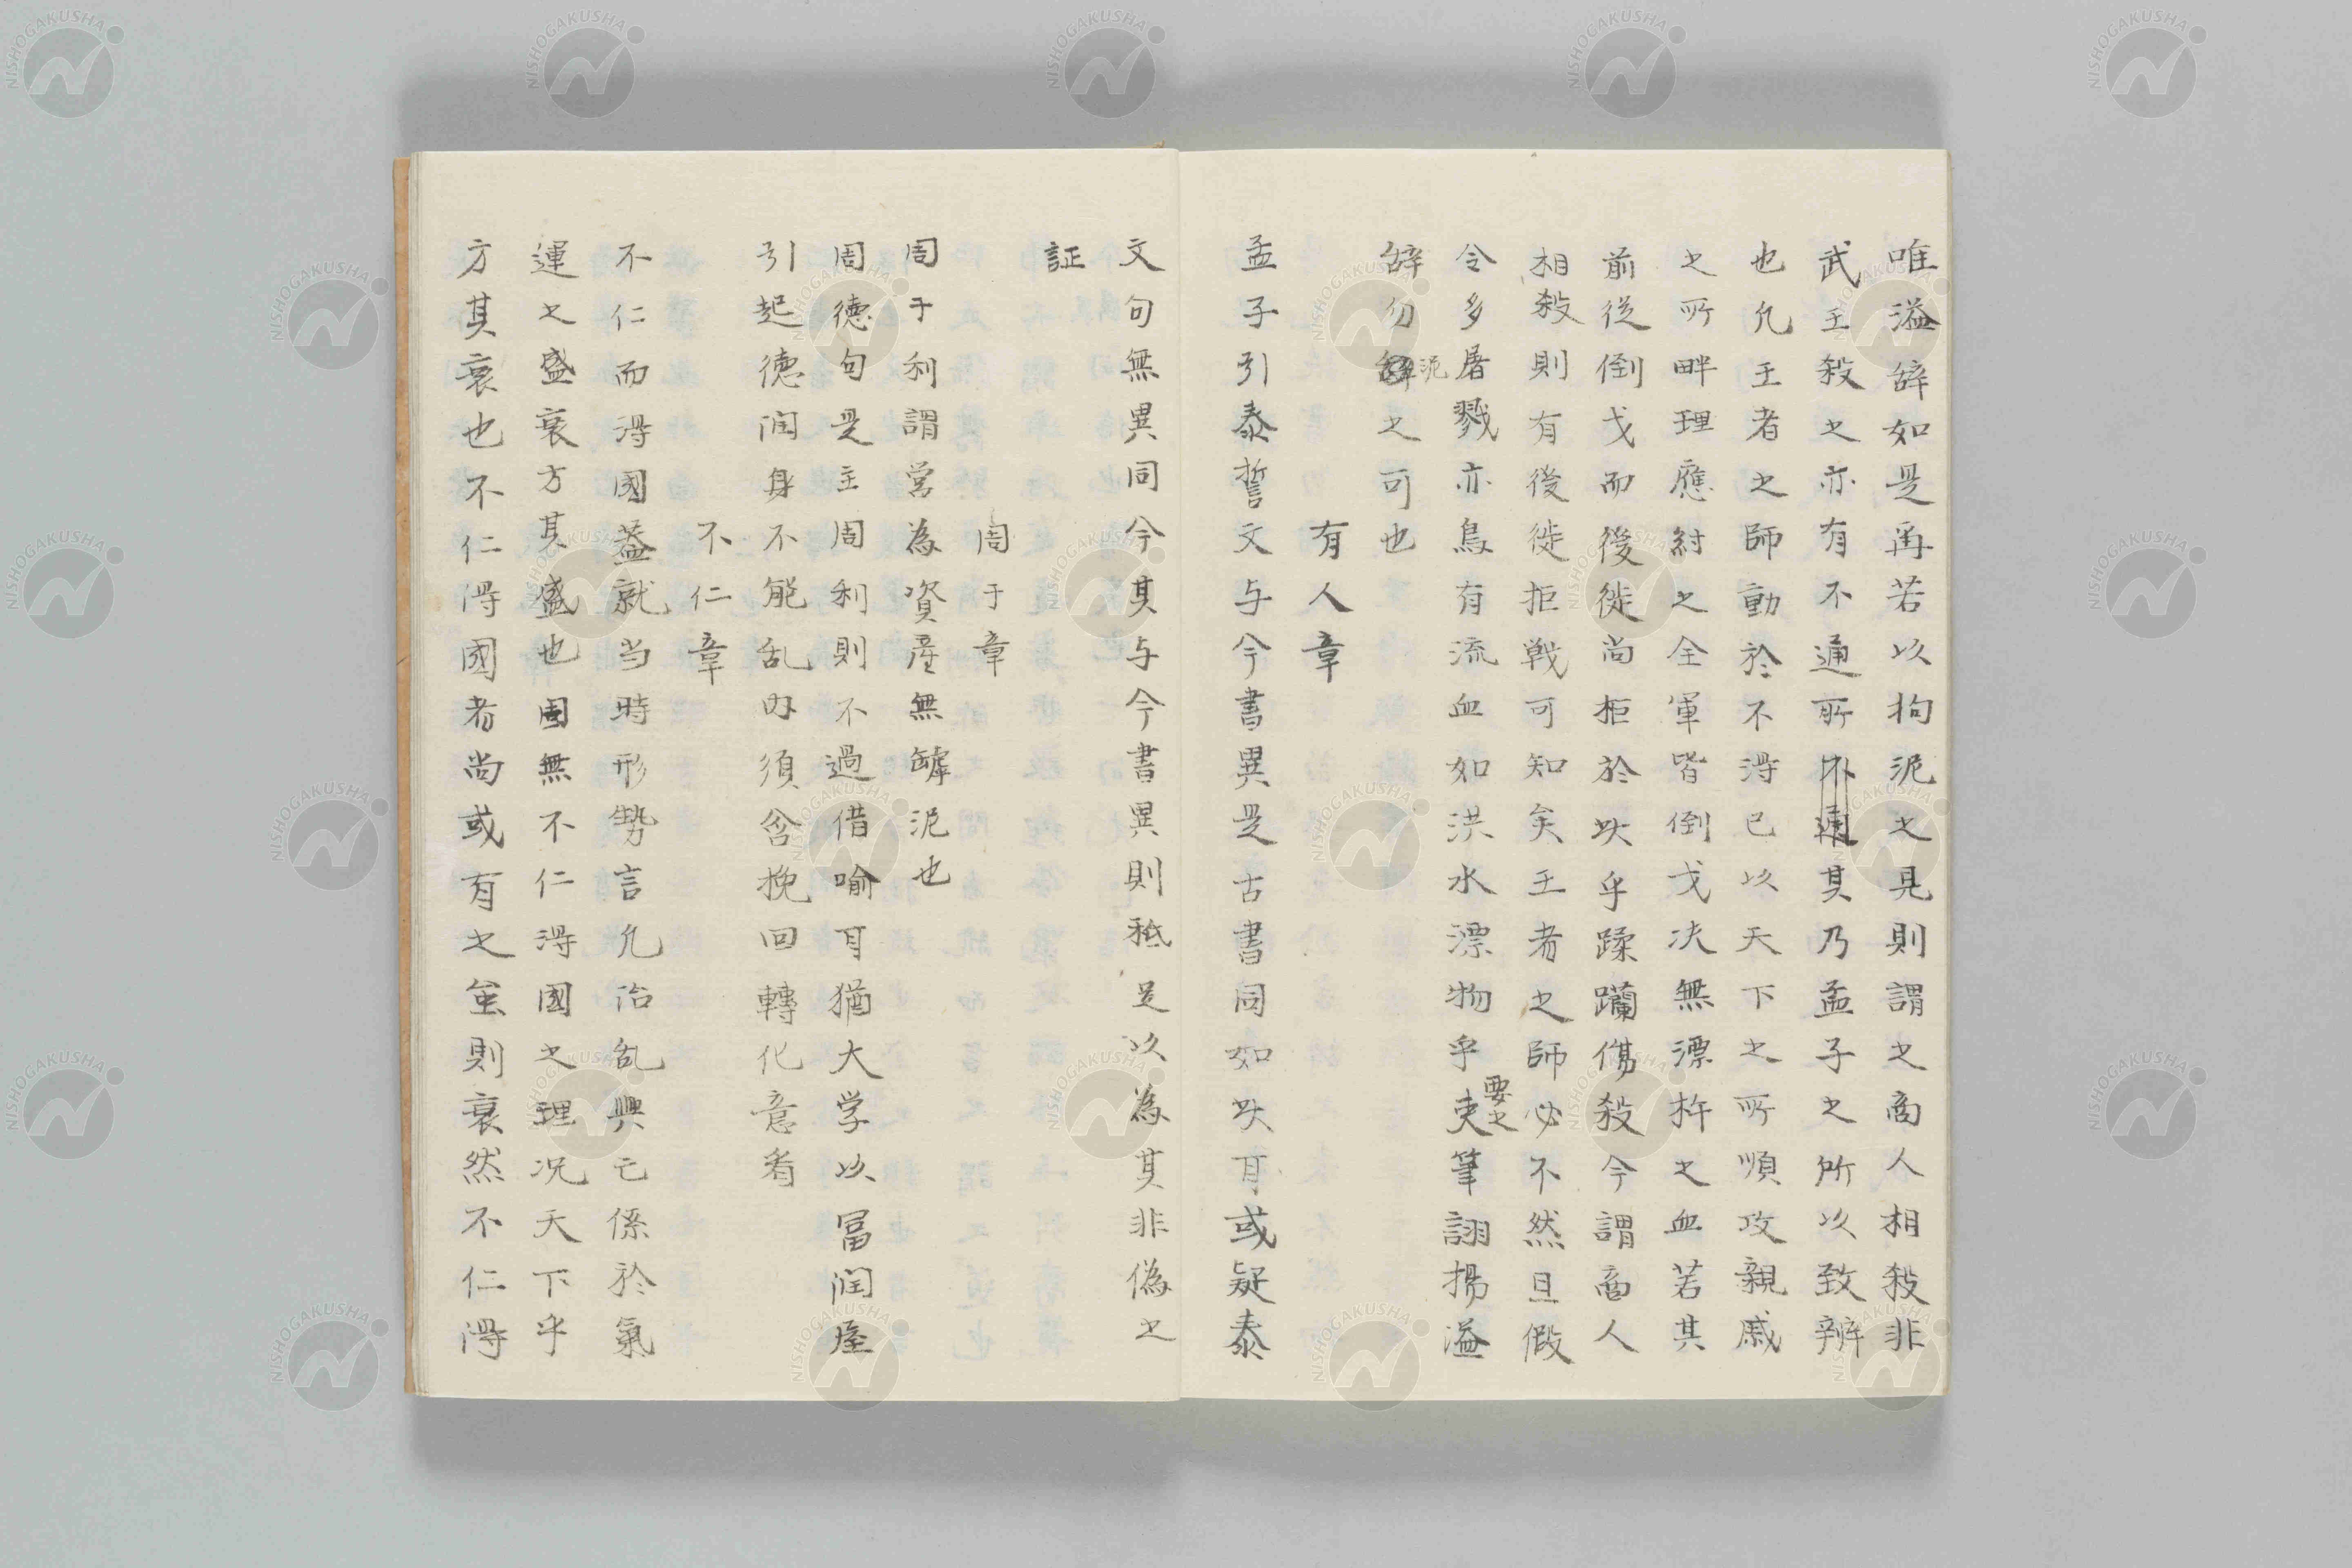 唯溢辞如是再若以拘泥之見則謂之商人相殺非
武王殺之亦有不通所不通其乃孟子之所以致辨
也凢王者之師動於不得已以天下之所順攻親戚
之所畔理應紂之全軍皆倒戈决無漂杵之血若其
前従倒戈而後徙尚拒於以乎蹂躪傷殺今謂商人
相殺則有後徙拒戦可知矣王者之師必不然且假
令多屠戮亦烏有流血如洪水漂物乎要之史筆詡揚溢
辞勿泥之可也
有人章
孟子引泰誓文与今書異是古書同如此耳或疑泰
文句無異同今其与今書異則秪足以為其非偽之
証
周于章
周于利謂営為資産無罅泥也
周徳句是主周利則不過借喻耳猶大学以冨润屋
引起徳润身不能乱内須含挽回轉化意看
不仁章
不仁而得國蓋就当時形勢言凢治乱興亡係於氣
運之盛衰方其盛也固無不仁得國之理况天下乎
方其衰也不仁得國者尚或有之虽則衰然不仁得
NISHOGAKUSHA